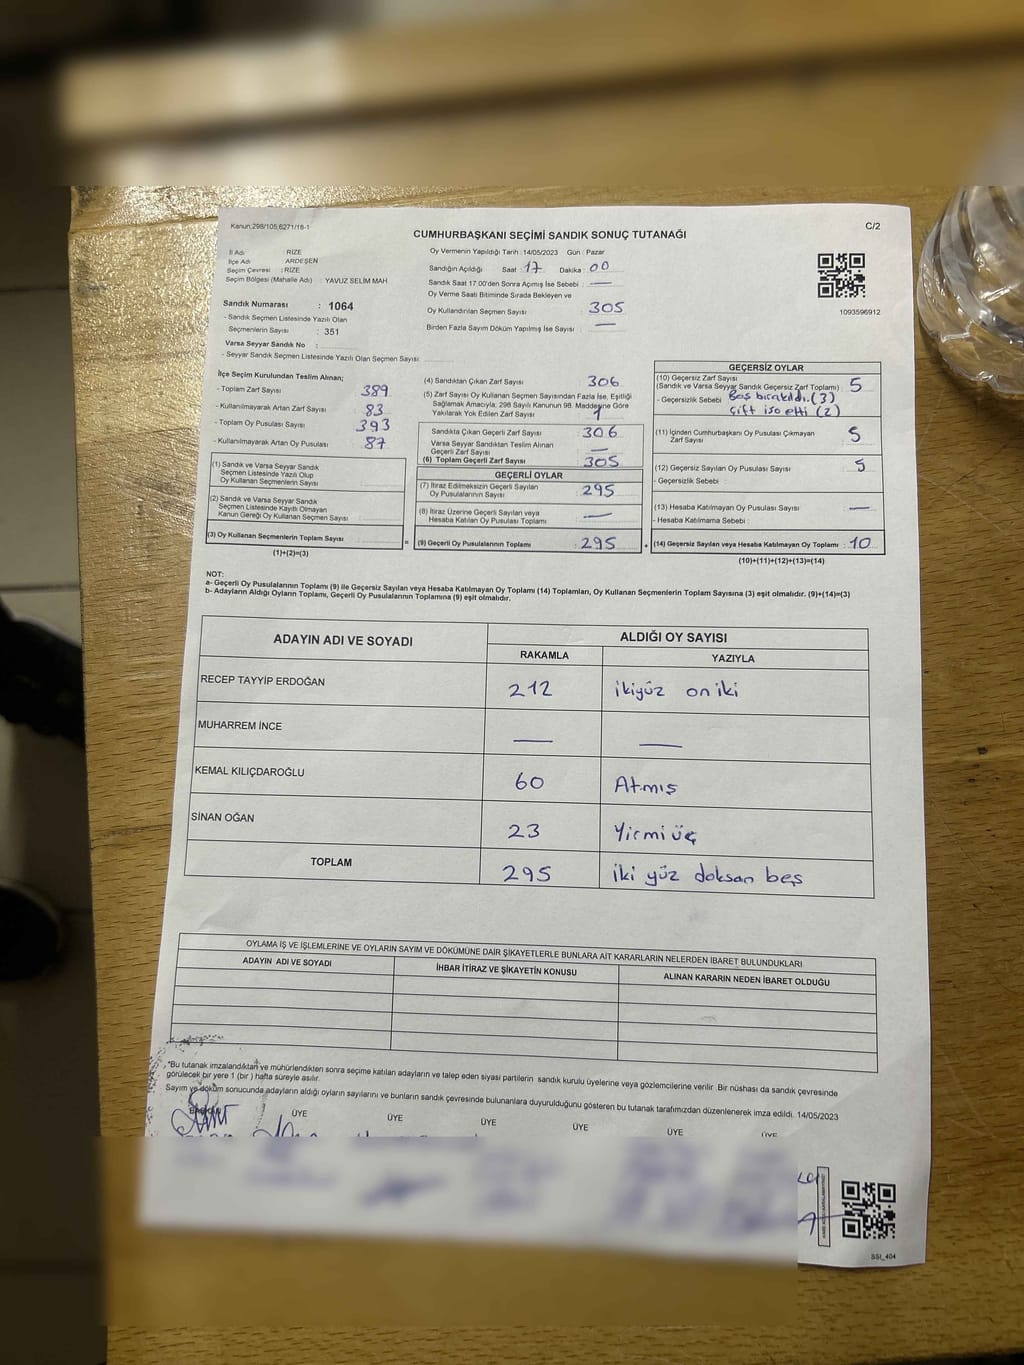 Kanun,298/105,6271/16-1
CUMHURBAŞKANI SEÇİMİ SANDIK SONUÇ TUTANAĞI
C/2
İl Adı : RİZE
İlçe Adı : ARDEŞEN
Seçim Çevresi : RİZE
Seçim Bölgesi (Mahalle Adı) : YAVUZ SELİM MAH.
Oy Vermenin Yapıldığı Tarih : 14/05/2023 Gün : Pazar
Sandığın Açıldığı Saat : 17 Dakika : 00
Sandık Saat 17.00'den Sonra Açımış İse Sebebi : —
Oy Verme Saati Bitiminde Sırada Bekleyen ve
Oy Kullandırılan Seçmen Sayısı : 305
Birden Fazla Sayım Döküm Yapılmış İse Sayısı : —
1093596912
Sandık Numarası : 1064
- Sandık Seçmen Listesinde Yazılı Olan
Seçmenlerin Sayısı : 351
Varsa Seyyar Sandık No :
- Seyyar Sandık Seçmen Listesinde Yazılı Olan Seçmen Sayısı :
İlçe Seçim Kurulundan Teslim Alınan;
- Toplam Zarf Sayısı 389
- Kullanılmayarak Artan Zarf Sayısı 83
- Toplam Oy Pusulası Sayısı 393
- Kullanılmayarak Artan Oy Pusulası 87
(1) Sandık ve Varsa Seyyar Sandık
Seçmen Listesinde Yazılı Olup
Oy Kullanan Seçmenlerin Sayısı
(2) Sandık ve Varsa Seyyar Sandık
Seçmen Listesinde Kayıtlı Olmayan
Kanun Gereği Oy Kullanan Seçmen Sayısı
(3) Oy Kullanan Seçmenlerin Toplam Sayısı
(1)+(2)=(3)
(4) Sandıktan Çıkan Zarf Sayısı : 306
(5) Zarf Sayısı Oy Kullanan Seçmen Sayısından Fazla İse, Eşitliği
Sağlamak Amacıyla, 298 Sayılı Kanunun 98. Maddesine Göre
Yakılarak Yok Edilen Zarf Sayısı : 1
Sandıkta Çıkan Geçerli Zarf Sayısı : 306
Varsa Seyyar Sandıktan Teslim Alınan
Geçerli Zarf Sayısı : —
(6) Toplam Geçerli Zarf Sayısı : 305
GEÇERLİ OYLAR
(7) İtiraz Edilmeksizin Geçerli Sayılan
Oy Pusulalarının Sayısı : 295
(8) İtiraz Üzerine Geçerli Sayılan veya
Hesaba Katılan Oy Pusulası Toplamı : —
= (9) Geçerli Oy Pusulalarının Toplamı : 295
GEÇERSİZ OYLAR
(10) Geçersiz Zarf Sayısı
(Sandık ve Varsa Seyyar Sandık Geçersiz Zarf Toplamı) : 5
- Geçersizlik Sebebi : Boş bırakıldı.(3)
çift iso etti (2)
(11) İçinden Cumhurbaşkanı Oy Pusulası Çıkmayan
Zarf Sayısı : 5
(12) Geçersiz Sayılan Oy Pusulası Sayısı : 5
- Geçersizlik Sebebi :
(13) Hesaba Katılmayan Oy Pusulası Sayısı : —
- Hesaba Katılmama Sebebi :
+ (14) Geçersiz Sayılan veya Hesaba Katılmayan Oy Toplamı : 10
(10)+(11)+(12)+(13)=(14)
NOT:
a- Geçerli Oy Pusulalarının Toplamı (9) ile Geçersiz Sayılan veya Hesaba Katılmayan Oy Toplamı (14) Toplamları, Oy Kullanan Seçmenlerin Toplam Sayısına (3) eşit olmalıdır. (9)+(14)=(3)
b- Adayların Aldığı Oyların Toplamı, Geçerli Oy Pusulalarının Toplamına (9) eşit olmalıdır.
ADAYIN ADI VE SOYADI
ALDIĞI OY SAYISI
RAKAMLA YAZIYLA
RECEP TAYYİP ERDOĞAN 212 ikiyüz oniki
MUHARREM İNCE — —
KEMAL KILIÇDAROĞLU 60 Atmış
SİNAN OĞAN 23 Yirmi üç
TOPLAM 295 iki yüz doksan beş
OYLAMA İŞ VE İŞLEMLERİNE VE OYLARIN SAYIM VE DÖKÜMÜNE DAİR ŞİKAYETLERLE BUNLARA AİT KARARLARIN NELERDEN İBARET BULUNDUKLARI
ADAYIN ADI VE SOYADI İHBAR İTİRAZ VE ŞİKAYETİN KONUSU ALINAN KARARIN NEDEN İBARET OLDUĞU
*Bu tutanak imzalandıktan ve mühürlendikten sonra seçime katılan adayların ve talep eden siyasi partilerin sandık kurulu üyelerine veya gözlemcilerine verilir. Bir nüshası da sandık çevresinde
görülecek bir yere 1 (bir ) hafta süreyle asılır.
Sayım ve döküm sonucunda adayların aldığı oyların sayılarını ve bunların sandık çevresinde bulunanlara duyurulduğunu gösteren bu tutanak tarafımızdan düzenlenerek imza edildi. 14/05/2023
BAŞKAN ÜYE ÜYE ÜYE ÜYE ÜYE ÜYE
SSI_404